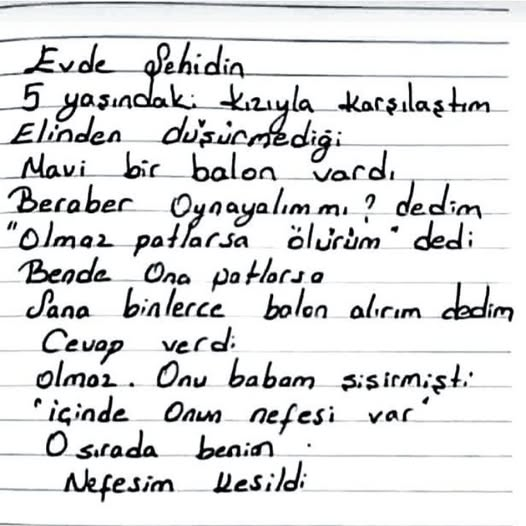 Evde Şehidin
5 yaşındaki kızıyla karşılaştım
Elinden düşürmediği
Mavi bir balon vardı
Beraber Oynayalım mı? dedim
"Olmaz patlarsa ölürüm" dedi
Bende Ona patlarsa
Sana binlerce balon alırım dedim
Cevap verdi
olmaz. Onu babam şişirmişti
"içinde Onun nefesi var"
O sırada benim
Nefesim kesildi